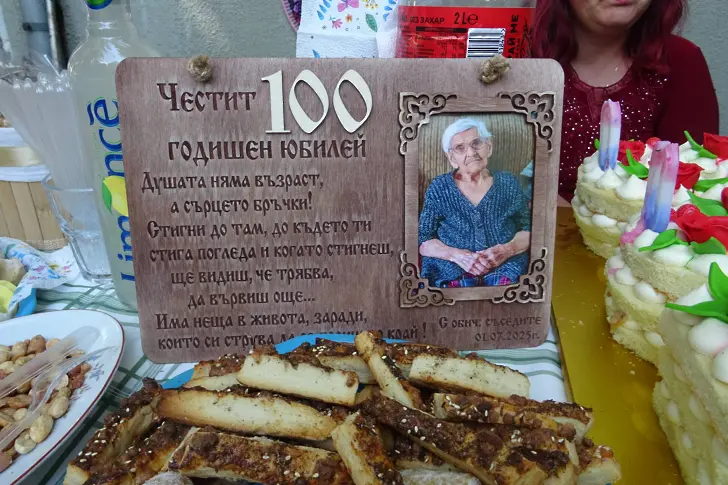 БЕЗ ЗАХАР 2Le
Limonce
Честит 100
годишен юбилей
Душата няма възраст,
а сърцето бръчки!
Стигни до там, до където ти
стига погледа и когато стигнеш,
ще видиш, че трябва,
да вървиш още...
Има неща в живота, заради,
които си струва да край !
С обич, съседите
01.07.2025г.